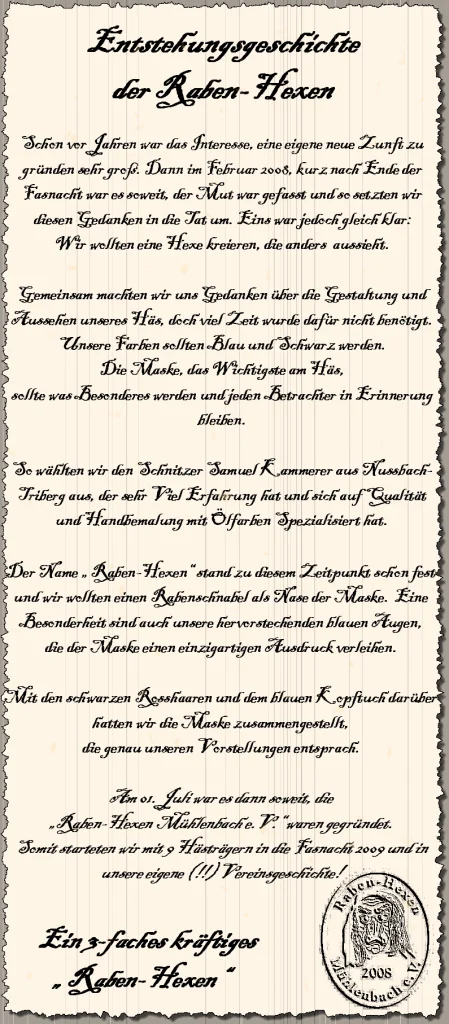 Entstehungsgeschichte
der Raben-Hexen
Schon vor Jahren war das Interesse, eine eigene neue Zunft zu
gründen sehr groß. Dann im Februar 2008, kurz nach Ende der
Fasnacht war es soweit, der Mut war gefasst und so setzten wir
diesen Gedanken in die Tat um. Eins war jedoch gleich klar:
Wir wollten eine Hexe kreieren, die anders aussieht.
Gemeinsam machten wir uns Gedanken über die Gestaltung und
Aussehen unseres Häs, doch viel Zeit wurde dafür nicht benötigt.
Unsere Farben sollten Blau und Schwarz werden.
Die Maske, das Wichtigste am Häs,
sollte was Besonderes werden und jeden Betrachter in Erinnerung
bleiben.
So wählten wir den Schnitzer Samuel Kammerer aus Nussbach-
Triberg aus, der sehr Viel Erfahrung hat und sich auf Qualität
und Handbemalung mit Ölfarben Spezialisiert hat.
Der Name „ Raben-Hexen“ stand zu diesem Zeitpunkt schon fest
und wir wollten einen Rabenschnabel als Nase der Maske. Eine
Besonderheit sind auch unsere hervorstechenden blauen Augen,
die der Maske einen einzigartigen Ausdruck verleihen.
Mit den schwarzen Rosshaaren und dem blauen Kopftuch darüber
hatten wir die Maske zusammengestellt,
die genau unseren Vorstellungen entsprach.
Am 01. Juli war es dann soweit, die
„Raben-Hexen Mühlenbach e. V.“ waren gegründet.
Somit starteten wir mit 9 Hästrägern in die Fasnacht 2009 und in
unsere eigene (!!!) Vereinsgeschichte!
Ein 3-faches kräftiges
„ Raben-Hexen “
Raben-Hexen
2008
Mühlenbach e. V.